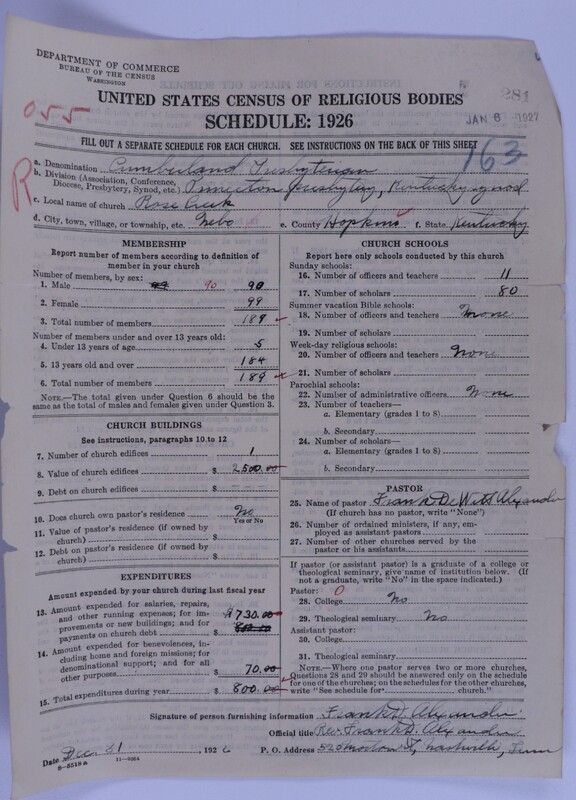 DEPARTMENT OF COMMERCE
BUREAU OF THE CENSUS
WASHINGTON
281
055
UNITED STATES CENSUS OF RELIGIOUS BODIES
SCHEDULE: 1926
JAN 6 1927
FILL OUT A SEPARATE SCHEDULE FOR EACH CHURCH. SEE INSTRUCTIONS ON THE BACK OF THIS SHEET
163
R
a. Denomination Cumberland Presbyterian
b. Division (Association, Conference,
Diocese, Presbytery, Synod, etc.) Princeton Presbytery, Kentucky Synod
c. Local name of church Rose Creek
d. City, town, village, or township, etc. Nebo e. County Hopkins f. State Kentucky
MEMBERSHIP
Report number of members according to definition of
member in your church
Number of members, by sex:
1. Male 90 90
2. Female 99
3. Total number of members 189
Number of members under and over 13 years old:
4. Under 13 years of age 5
5. 13 years old and over 184
6. Total number of members 189
NOTE.—The total given under Question 6 should be the
same as the total of males and females given under Question 3.
CHURCH BUILDINGS
See instructions, paragraphs 10 to 12
7. Number of church edifices 1
8. Value of church edifices $ 2,500.00
9. Debt on church edifices $
10. Does church own pastor's residence? No
Yes or No
11. Value of pastor's residence (if owned by
church) $
12. Debt on pastor's residence (if owned by
church) $
EXPENDITURES
Amount expended by your church during last fiscal year
13. Amount expended for salaries, repairs,
and other running expenses; for im-
provements or new buildings; and for
payments on church debt $ 730.00
14. Amount expended for benevolences, in-
cluding home and foreign missions; for
denominational support; and for all
other purposes $ 70.00
15. Total expenditures during year $ 800.00
CHURCH SCHOOLS
Report here only schools conducted by this church
Sunday schools:
16. Number of officers and teachers 11
17. Number of scholars 80
Summer vacation Bible schools:
18. Number of officers and teachers None
19. Number of scholars
Week-day religious schools:
20. Number of officers and teachers None
21. Number of scholars
Parochial schools:
22. Number of administrative officers None
23. Number of teachers—
a. Elementary (grades 1 to 8)
b. Secondary
24. Number of scholars—
a. Elementary (grades 1 to 8)
b. Secondary
PASTOR
25. Name of pastor Frank DeWitt Alexander
(If church has no pastor, write "None")
26. Number of ordained ministers, if any, em-
ployed as assistant pastors
27. Number of other churches served by the
pastor or his assistants
If pastor (or assistant pastor) is a graduate of a college or
theological seminary, give name of institution below. (If
not a graduate, write "No" in the space indicated.)
Pastor: 0
28. College No
29. Theological seminary No
Assistant pastor:
30. College
31. Theological seminary
NOTE.—Where one pastor serves two or more churches,
Questions 28 and 29 should be answered only on the schedule
for one of the churches; on the schedules for the other churches,
write "See schedule for church."
Signature of person furnishing information Frank D. Alexander
Official title Rev. Frank D. Alexander
Date Dec. 31, 1926 P. O. Address 520 Morton St, Nashville, Tenn
8—5518a 11—9364